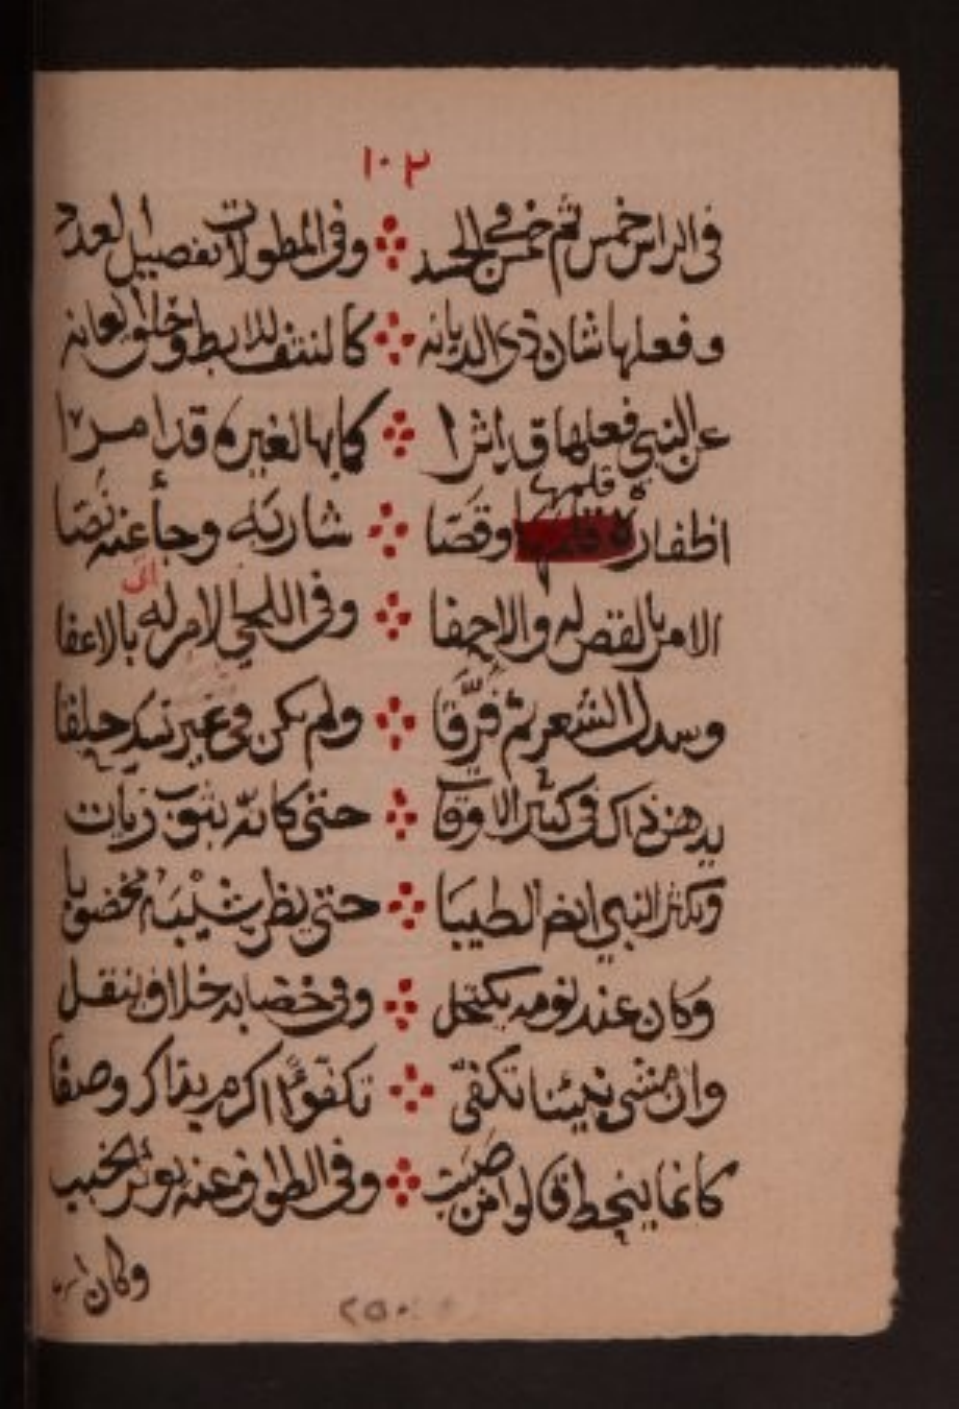 ١٠٢
في الراس خمس ثم خمس في الجسد وفي المطولات تفصيل العدد
وفعلها شان ذي الديانه كالنتف للابط وحلق العانه
عن النبي فعلها قد اثرا كما بها لغيره قد امرا
اظفاره قلمها وقصا شاربه وجأ عنه نصا
قلمها
الامر بالقص له والاحفا وفي اللحي الامر له بالاعفا
وسدل الشعر ثم فرقا ولم يكن في غير نسك حلقا
يدهن ذاك في كثير الاوقات حتى كانه بثوب زيات
ويكثر النبي ايضا الطيبا حتى يظن شيبه مخضوبا
وكان عند نومه يكتحل وفي خضابه خلاف ينقل
وان مشى تكفى تكفؤا اكرم بذاك وصفا
كانما ينحط قالوا من صبب وفي الطواف عنه يوثر الخبب
وكان